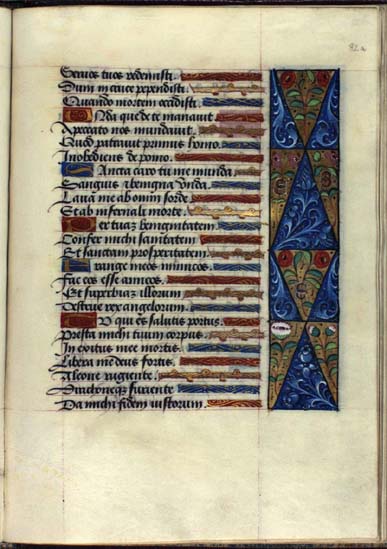 82a
Seruos tuos redemisti.
Dum in cruce pependisti.
Quando mortem occidisti.
Nda que de te manauit.
A peccato nos mundauit.
Quod patrauit primus homo.
Inobediens de pomo.
Ancta caro tu me munda.
Sanguis & benigna vnda.
Laua me ab omni sorde.
Et ab infernali morte.
er tuam benignitatem
Confer michi sanitatem
Et sanctam prosperitatem
range meos inimicos.
Fac eos esse amicos.
Et superbiam illorum
Destrue rex angelorum.
O qui es salutis portus.
Presta michi tuum corpus.
In exitus mee mortis.
Libera me deus fortis.
A leone rugiente.
Draconeque furiente.
Da michi fidem iustorum.